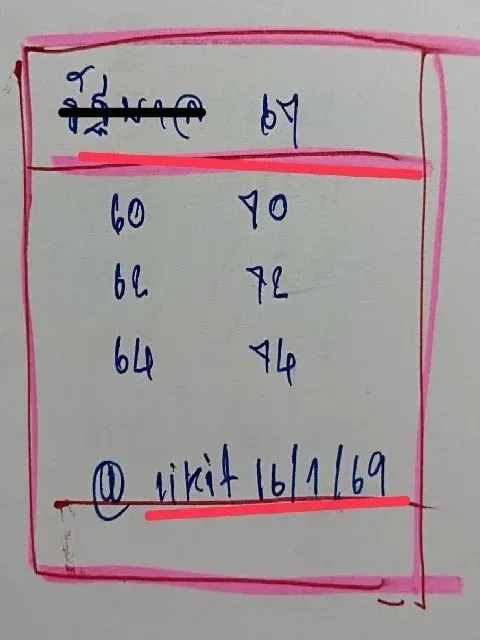 67
60 70
62 72
64 74
@ likit 16/1/69